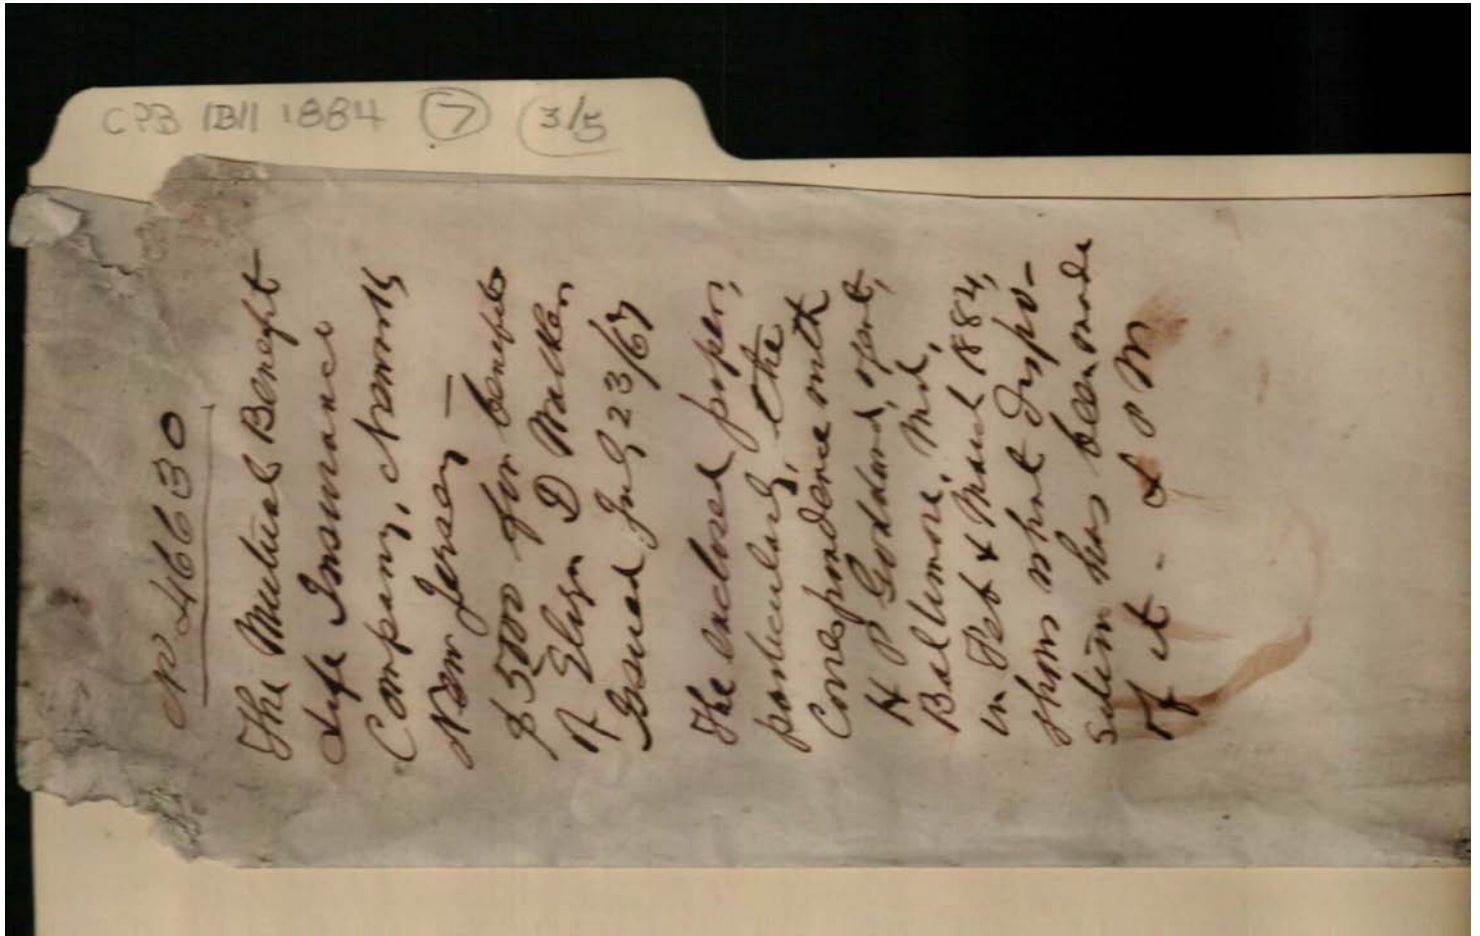 CPB IBII 1884 7 3/5
No 46630
The Mutual Benefit
Life Insurance
Company, Newark
New Jersey —
$ 5000 for benefit
of Eliza D Walker
Issued July 23/67
The enclosed papers,
particularly, the
Correspondence with
H P Goddard, agent,
Baltimore, Md,
in Feb & March 1884,
shows what dispo-
sition has been made
of it -